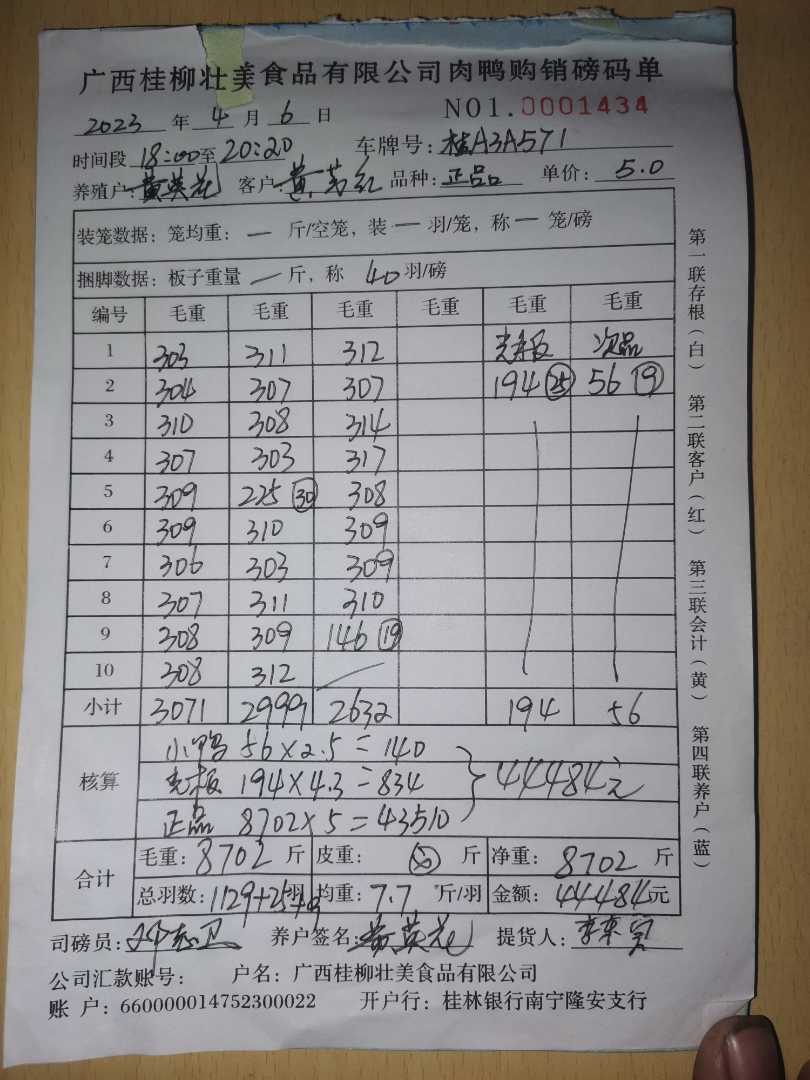 广西桂柳壮美食品有限公司肉鸭购销磅码单
2023 年 4 月 6 日 NO1.0001434
时间段 18:00至20:20 车牌号:桂A3A571
养殖户:黄英花 客户:黄 红 品种:正品 单价:5.0
装笼数据:笼均重:一 斤/空笼,装一 羽/笼,称一 笼/磅
捆脚数据:板子重量 一斤,称 40羽/磅
编号 毛重 毛重 毛重 毛重 毛重 毛重
1 303 311 312 次品
2 304 307 307 194 25 56 19
3 310 308 314
4 307 303 317
5 309 225 30 308
6 309 310 309
7 306 303 309
8 307 311 310
9 308 309 146 19
10 308 312
小计 3071 2999 2632 194 56
核算
小鸭 56×2.5=140
板 194×4.3=834
正品 8702×5=43510
44484元
合计
毛重:8702 斤 皮重: 斤 净重:8702 斤
总羽数:1129+25+19羽 均重:7.7 斤/羽 金额:44484元
司磅员: 卫 养户签名:黄英花 提货人:李
公司汇款账号: 户名:广西桂柳壮美食品有限公司
账 户:660000014752300022 开户行:桂林银行南宁隆安支行
第一联存根(白) 第二联客户(红) 第三联会计(黄) 第四联养户(蓝)